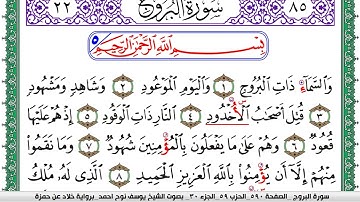 ٢٢ سُورَةُ البُرُوجِ ٨٥
بِسْمِ اللَّهِ الرَّحْمَٰنِ الرَّحِيمِ ٥
وَالسَّمَاءِ ذَاتِ الْبُرُوجِ ١ وَالْيَوْمِ الْمَوْعُودِ ٢ وَشَاهِدٍ وَمَشْهُودٍ
٣ قُتِلَ أَصْحَٰبُ الْأُخْدُودِ ٤ النَّارِ ذَاتِ الْوَقُودِ ٥ إِذْ هُمْ عَلَيْهَا
قُعُودٌ ٦ وَهُمْ عَلَىٰ مَا يَفْعَلُونَ بِالْمُؤْمِنِينَ شُهُودٌ ٧ وَمَا نَقَمُوا
مِنْهُمْ إِلَّا أَن يُؤْمِنُوا بِاللَّهِ الْعَزِيزِ الْحَمِيدِ ٨ الَّذِي لَهُ مُلْكُ
سورة البروج _ الصفحة ٥٩٠_ الحزب ٥٩_ الجزء ٣٠ _ بصوت الشيخ يوسف نوح أحمد_ برواية خلاد عن حمزة